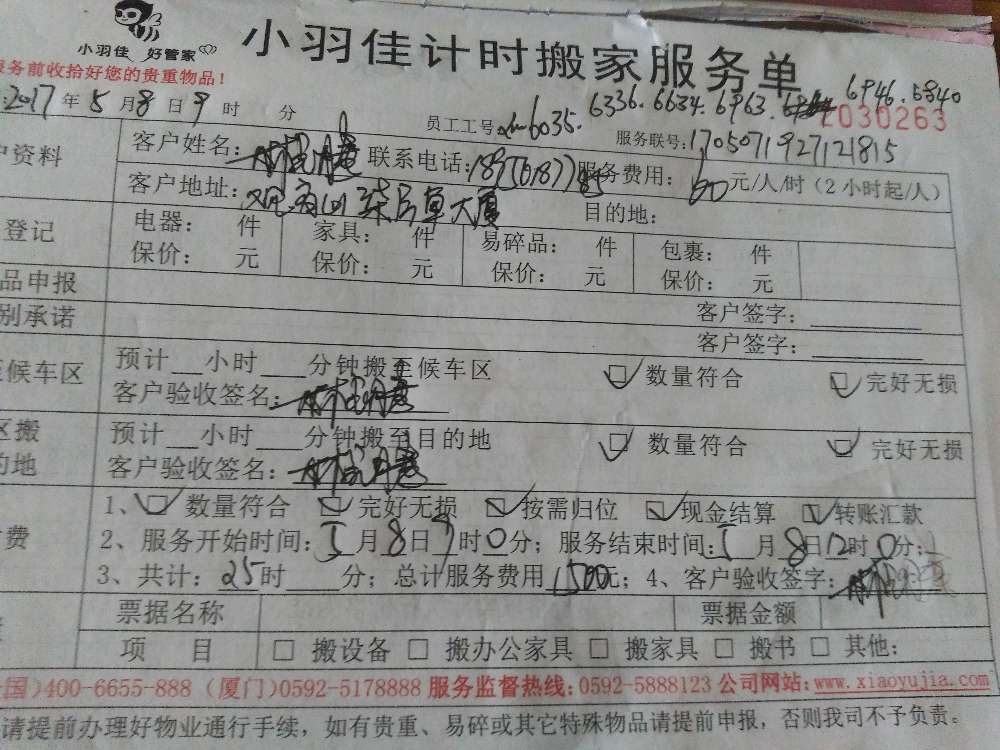 小羽佳 好管家
小羽佳计时搬家服务单
服务前收拾好您的贵重物品！
2017年5月8日9时 分
员工工号 6035. 6336. 6634. 6963. 6946. 6840
2030263
户资料 客户姓名： 联系电话： 服务联号：17050711927121815
服务费用：60元/人/时（2小时起/人）
客户地址： 大厦 目的地：
登记 电器： 件 家具： 件 易碎品： 件 包裹： 件
保价： 元 保价： 元 保价： 元 保价： 元
品申报 客户签字：
别承诺 客户签字：
至候车区 预计__小时___分钟搬至候车区 数量符合 完好无损
客户验收签名：
区搬 预计__小时___分钟搬至目的地 数量符合 完好无损
的地 客户验收签名：
1、 数量符合 完好无损 按需归位 现金结算 转账汇款
费 2、服务开始时间：5月8日9时0分；服务结束时间：5月8日12时0分；
3、共计：25时___分；总计服务费用1500元；4、客户验收签字：
票据名称 票据金额
项 目 □ 搬设备 □ 搬办公家具 □ 搬家具 □ 搬书 □ 其他：
国)400-6655-888（厦门)0592-5178888 服务监督热线:0592-5888123 公司网站:www.xiaoyujia.com
请提前办理好物业通行手续，如有贵重、易碎或其它特殊物品请提前申报，否则我司不予负责。